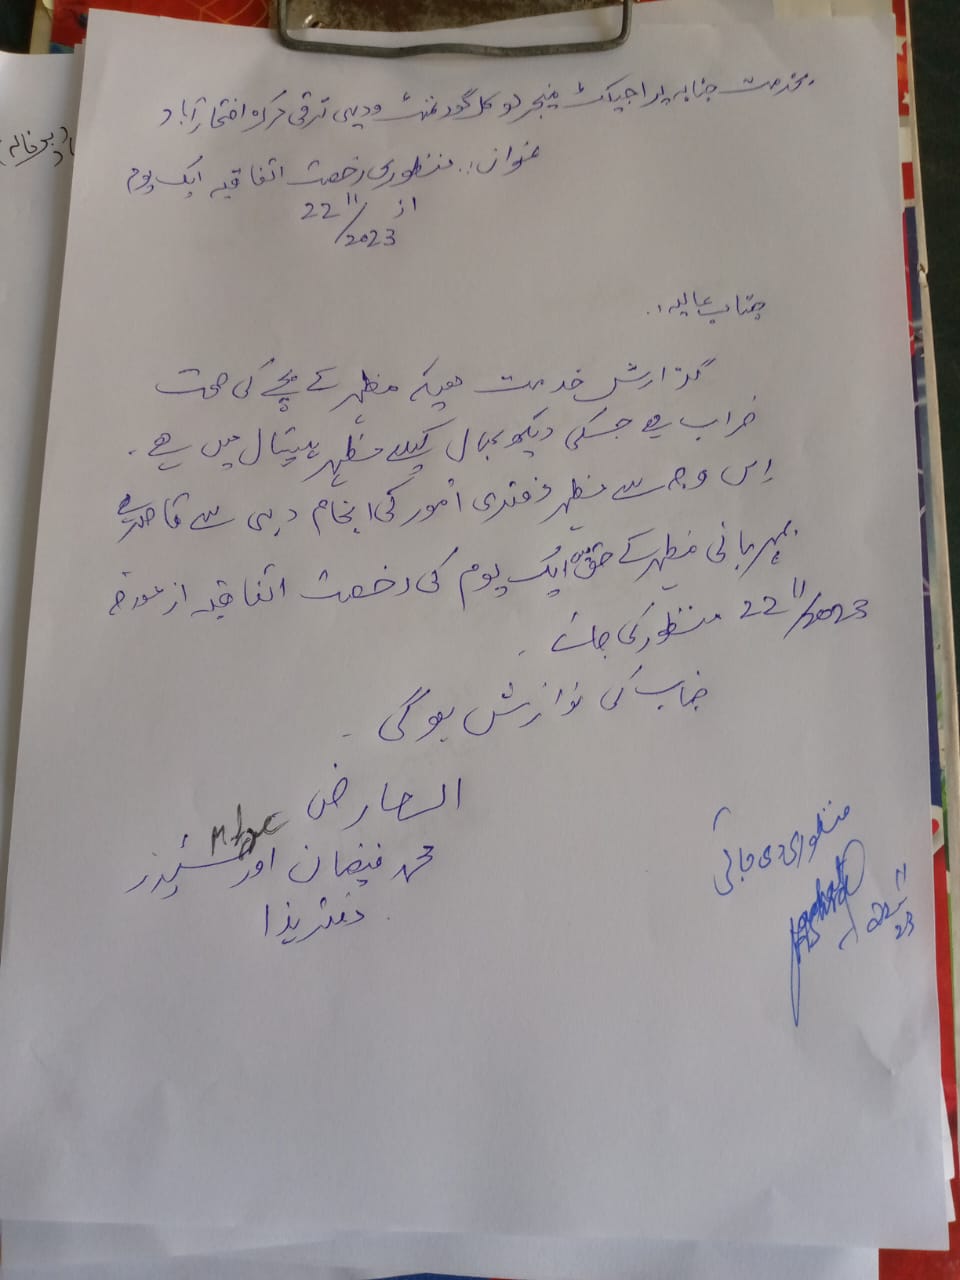 بخدمت جناب پراجیکٹ منیجر لوکل گورنمنٹ ودیہی ترقی مرکز افتخارآباد
عنوان:. منظوری رخصت اتفاقیہ ایک یوم
از 22/11/2023
جناب عالیہ.
گزارش خدمت ھیکہ مظہر کے بچے کی صحت
خراب ہے جسکی دیکھ بھال کیلئے مظہر ہسپتال میں ہے.
اِس وجہ سے مظہر دفتری اُمور کی انجام دہی سے قاصر ہے
بمہربانی مظہر کے حق میں ایک یوم کی رخصت اتفاقیہ از مورخہ
22/11/2023 منظور کی جائے.
جناب کی نوازش ہوگی.
العارض
محمد فیضان اورسئیر
دفتر ہذا
منظوری دی جاتی
22/11/23